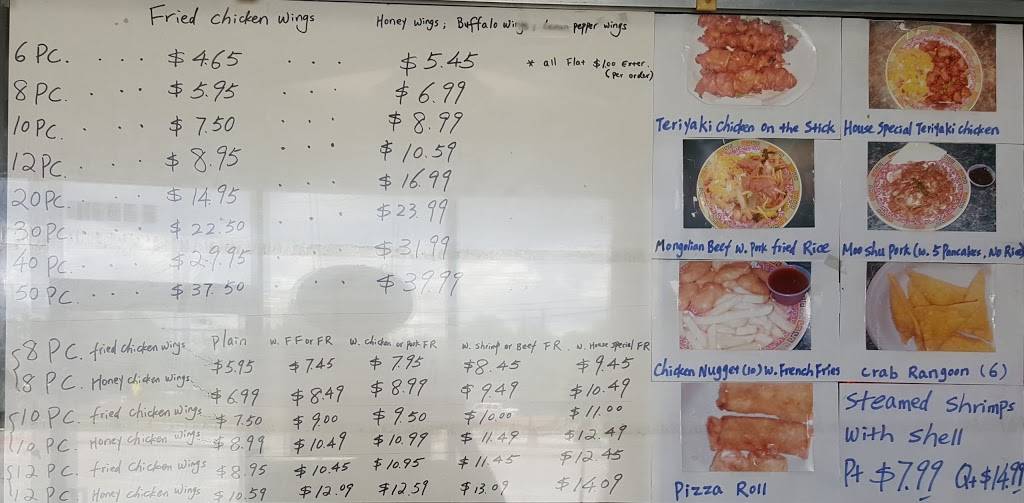 Fried chicken wings
Honey wings; Buffalo wings; Lemon pepper wings
* all Flat $1.00 Exter.
(per order)
6 PC. . . . $4.65 . . . $5.45
8 PC. . . . $5.95 . . . $6.99
10 PC. . . . $7.50 . . . $8.99
12 PC. . . . $8.95 . . . $10.59
20 PC. . . . $14.95 . . . $16.99
30 PC. . . . $22.50 . . . $23.99
40 PC. . . . $29.95 . . . $31.99
50 PC. . . . $37.50 . . . $39.99
Plain W. FF or FR W. chicken or pork FR W. Shrimp or Beef FR. W. House Special FR
8 PC. fried chicken wings $5.95 $7.45 $7.95 $8.45 $9.45
8 PC. Honey chicken wings $6.99 $8.49 $8.99 $9.49 $10.49
10 PC. fried chicken wings $7.50 $9.00 $9.50 $10.00 $11.00
10 PC. Honey chicken wings $8.99 $10.49 $10.99 $11.49 $12.49
12 PC. fried chicken wings $8.95 $10.45 $10.95 $11.45 $12.45
12 PC. Honey chicken wings $10.59 $12.09 $12.59 $13.09 $14.09
Teriyaki Chicken on the Stick
House Special Teriyaki chicken
Mongolian Beef w. Pork fried Rice
Moo shu Pork (w. 5 Pancakes, No Rice)
Chicken Nugget (10) w. French Fries
Crab Rangoon (6)
Pizza Roll
Steamed Shrimps
With Shell
Pt $7.99 Qt $14.99